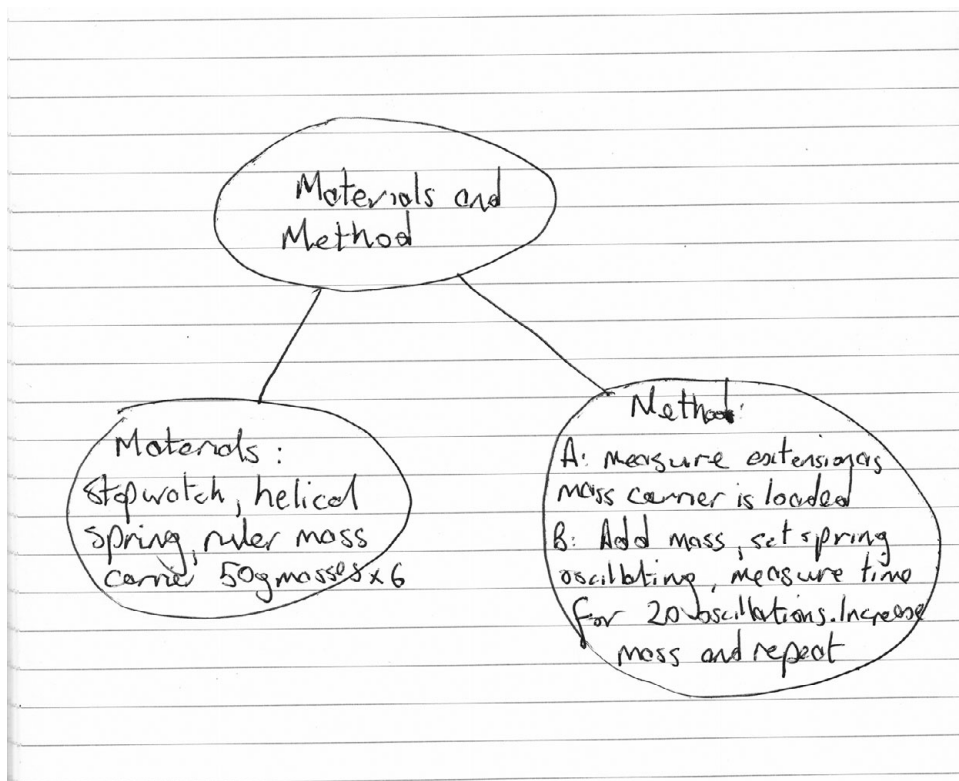 Materials and
Method
Materials:
Stopwatch, helical
spring, ruler mass
carrier 50g masses x 6
Method:
A: measure extension as
mass carrier is loaded
B: Add mass, set spring
oscillating, measure time
for 20 oscillations. Increase
mass and repeat